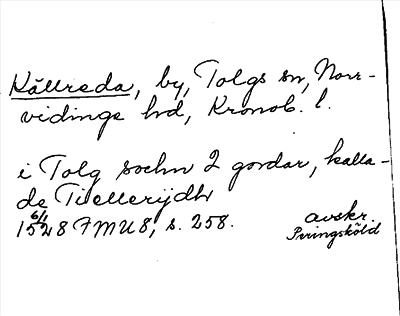 Källreda, by, Tolgs sn, Norr-
vidinge hd, Kronob. l.
i Tolg sochn 2 gordar, kalla-
de Tiellerijdh
6/1
1528 FMU 8, s. 258.
avskr.
Peringsköld